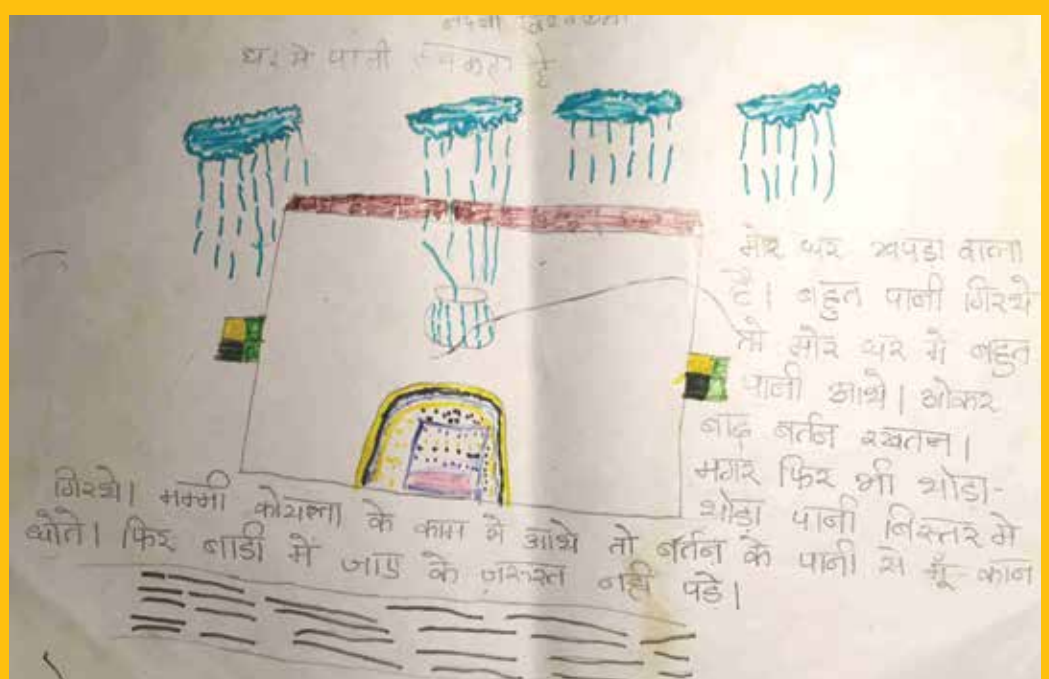 घर में पानी टपकता है
मोर घर खपडा वाला
है। बहुत पानी गिरथे
तो मोर घर में बहुत
पानी आथे। ओकर
बाद बर्तन रखतन।
मगर फिर भी थोड़ा-
थोड़ा पानी बिस्तर मे
गिरथे। मम्मी कोयला के काम मे आथे तो बर्तन के पानी से मुँ कान
धोते। फिर बाडी में जाए के जरुरत नही पडे।